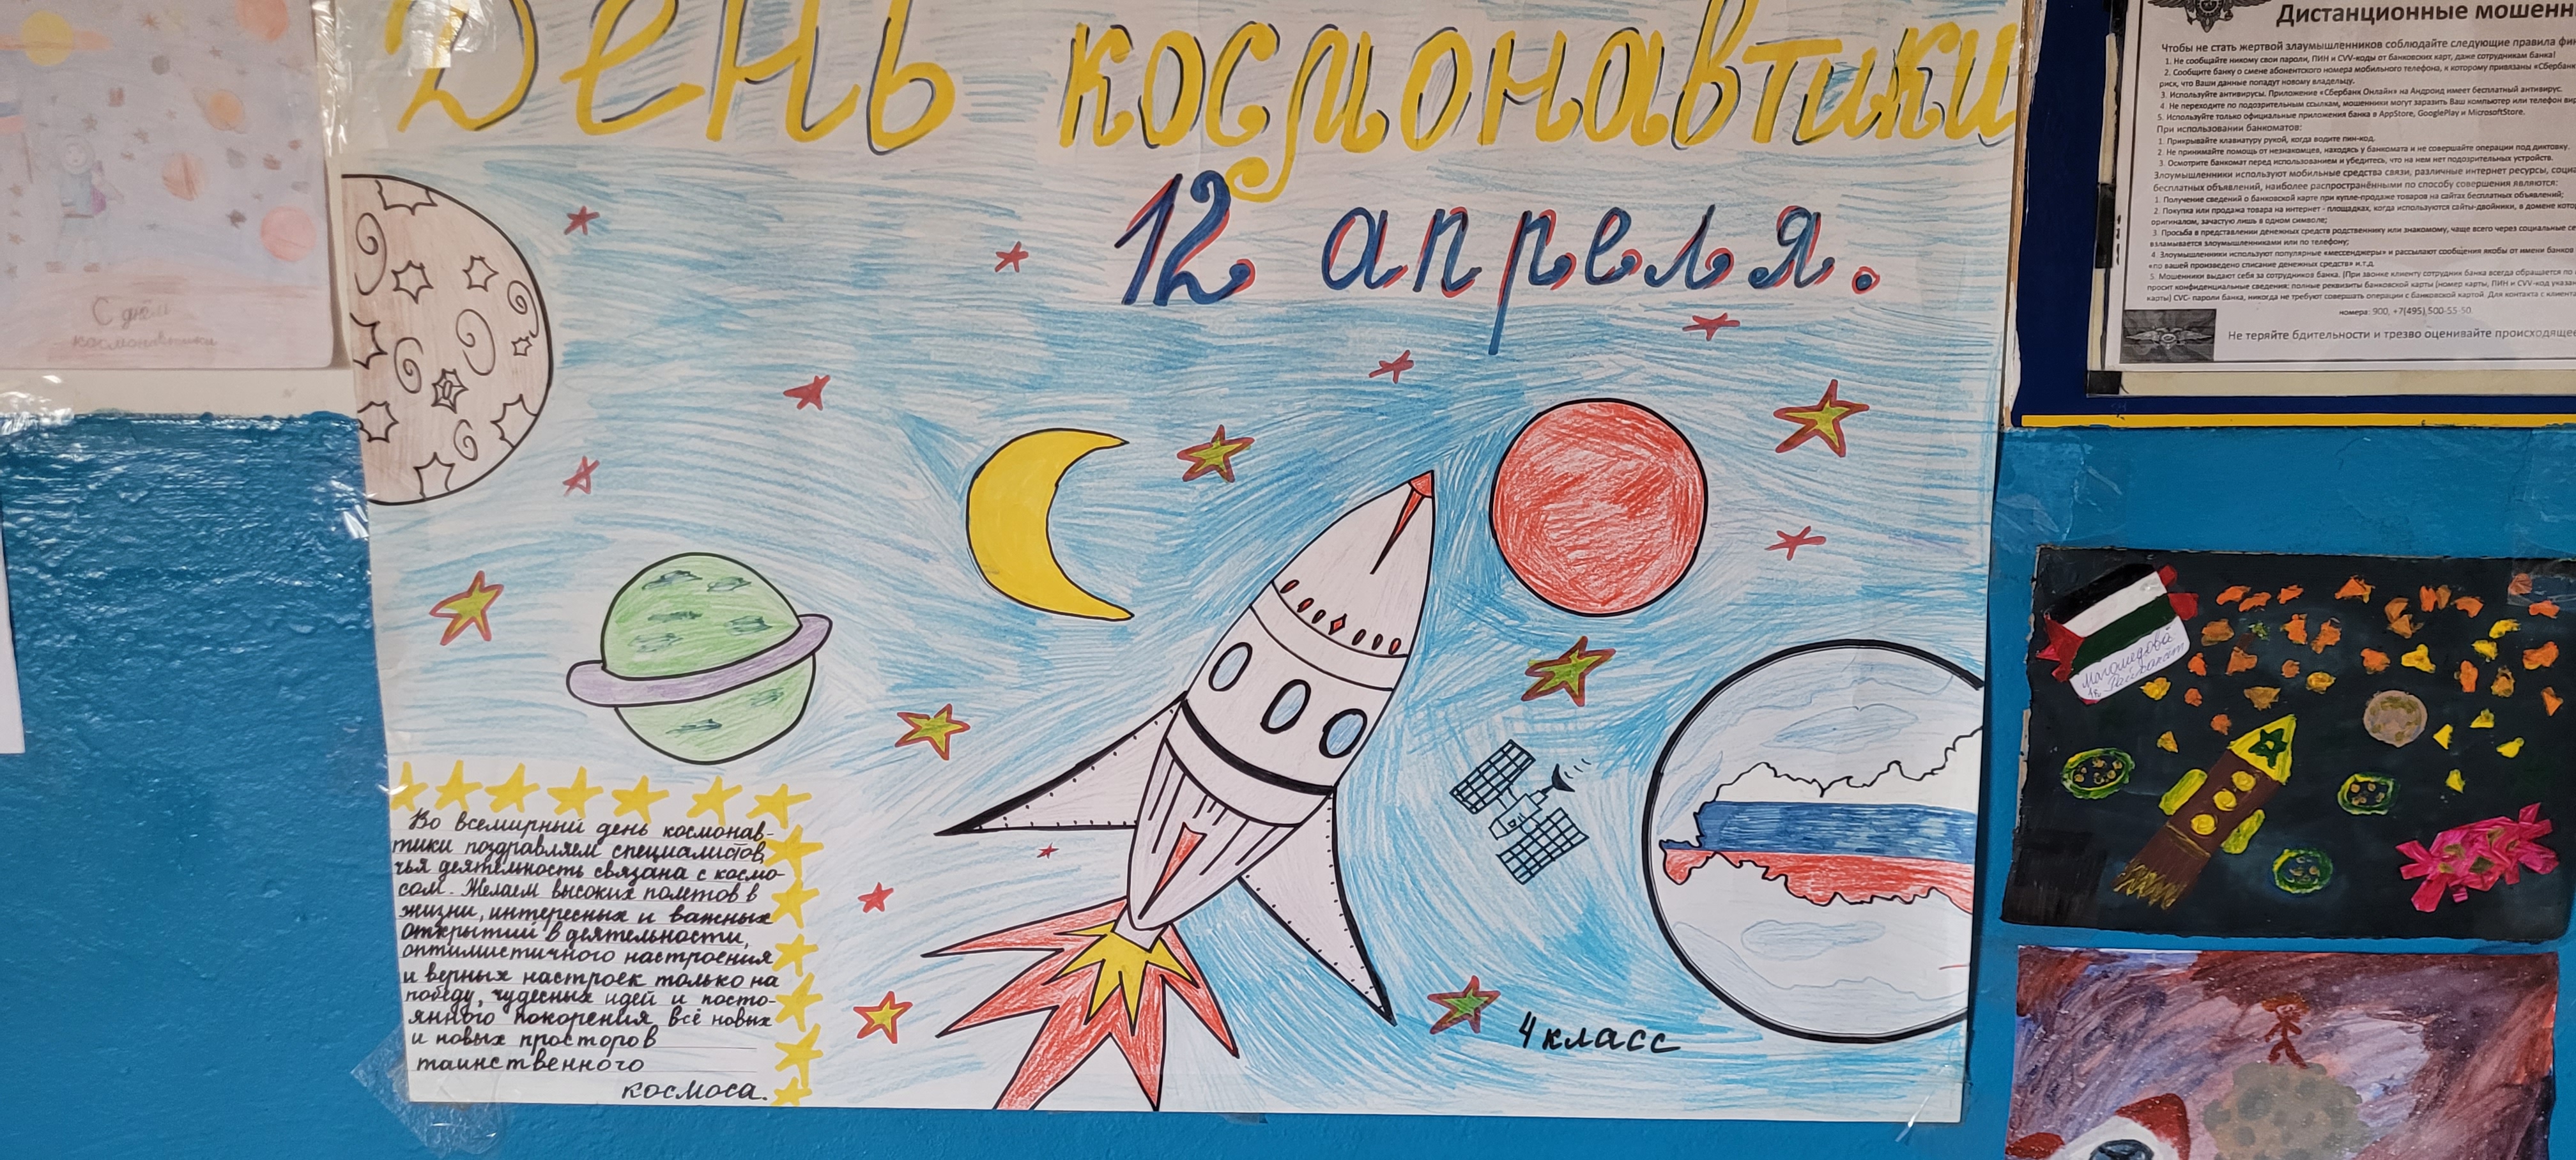 День космонавтики
12 апреля.
Во всемирный день космонав-
тики поздравляем специалистов,
чья деятельность связана с космо-
сом. Желаем высоких полетов в
жизни, интересных и важных
открытий в деятельности,
оптимистичного настроения
и верных настроек только на
победу, чудесных идей и посто-
янного покорения всё новых
и новых просторов
таинственного
космоса.
4 класс
С днём
космонавтики
Дистанционные мошенн
Чтобы не стать жертвой злоумышленников соблюдайте следующие правила фи
1. Не сообщайте никому свои пароли, ПИН и CVV-коды от банковских карт, даже сотрудникам банка!
2. Сообщите банку о смене абонентского номера мобильного телефона, к которому привязаны «Сбербанк
риск, что Ваши данные попадут новому владельцу.
3. Используйте антивирусы. Приложение «Сбербанк Онлайн» на Андроид имеет бесплатный антивирус.
4. Не переходите по подозрительным ссылкам, мошенники могут заразить Ваш компьютер или телефон ви
5. Используйте только официальные приложения банка в AppStore, GooglePlay и MicrosoftStore.
При использовании банкоматов:
1. Прикрывайте клавиатуру рукой, когда водите пин-код.
2. Не принимайте помощь от незнакомцев, находясь у банкомата и не совершайте операции под диктовку.
3. Осмотрите банкомат перед использованием и убедитесь, что на нем нет подозрительных устройств.
Злоумышленники используют мобильные средства связи, различные интернет ресурсы, социа
бесплатных объявлений, наиболее распространёнными по способу совершения являются:
1. Получение сведений о банковской карте при купле-продаже товаров на сайтах бесплатных объявлений;
2. Покупка или продажа товара на интернет - площадках, когда используются сайты-двойники, в домене кото
оригиналом, зачастую лишь в одном символе;
3. Просьба в представлении денежных средств родственнику или знакомому, чаще всего через социальные се
взламывается злоумышленниками или по телефону;
4. Злоумышленники используют популярные «мессенджеры» и рассылают сообщения якобы от имени банков
«по вашей произведено списание денежных средств» и.т.д.
5. Мошенники выдают себя за сотрудников банка. (При звонке клиенту сотрудник банка всегда обращается по
просит конфиденциальные сведения: полные реквизиты банковской карты (номер карты, ПИН и CVV-код указан
карты) CVC- пароли банка, никогда не требуют совершать операции с банковской картой. Для контакта с клиент
номера: 900, +7(495) 500-55-50.
Не теряйте бдительности и трезво оценивайте происходящее
Магомедова